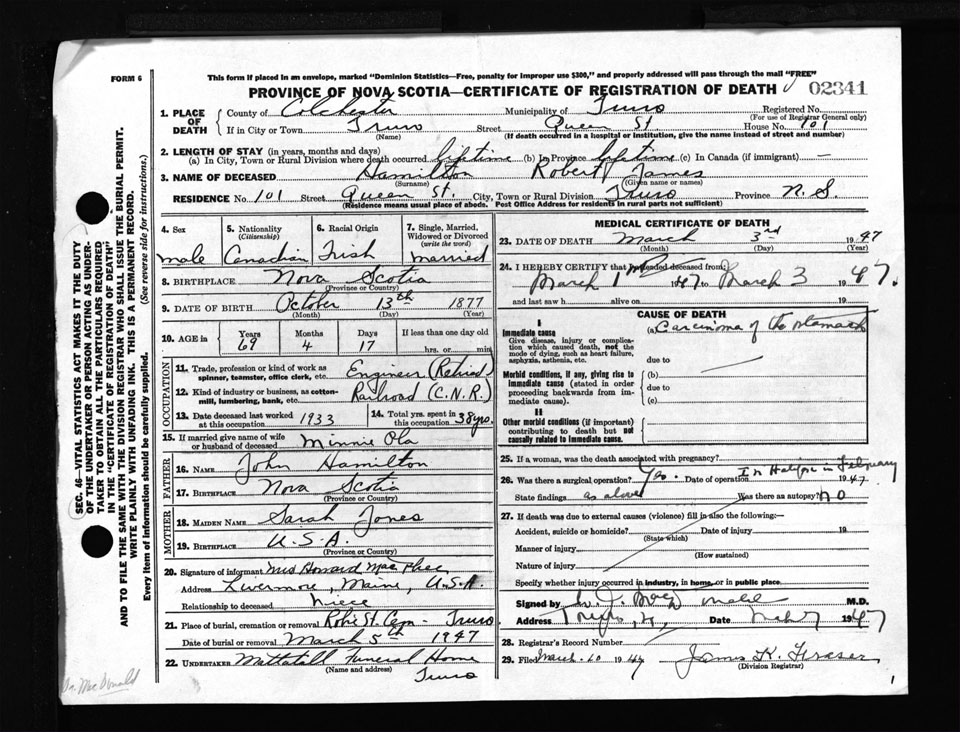 FORM 6
This form if placed in an envelope, marked "Dominion Statistics—Free, penalty for improper use $300," and properly addressed will pass through the mail "FREE"
PROVINCE OF NOVA SCOTIA—CERTIFICATE OF REGISTRATION OF DEATH 02341
1. PLACE OF DEATH County of Colchester Municipality of Truro Registered No.
(For use of Registrar General only)
If in City or Town Truro Street Queen St House No. 101
(Name) (If death occurred in a hospital or institution, give the name instead of street and number)
2. LENGTH OF STAY (in years, months and days)
(a) In City, Town or Rural Division where death occurred lifetime (b) In Province lifetime (c) In Canada (if immigrant) —
3. NAME OF DECEASED Hamilton Robert James
(Surname) (Given name or names)
RESIDENCE No. 101 Street Queen St City, Town or Rural Division Truro Province N.S.
(Residence means usual place of abode. Post Office Address for residents in rural parts not sufficient)
4. Sex male
5. Nationality (Citizenship) Canadian
6. Racial Origin Irish
7. Single, Married, Widowed or Divorced (write the word) married
8. BIRTHPLACE Nova Scotia
(Province or Country)
9. DATE OF BIRTH October 13th 1877
(Month) (Day) (Year)
10. AGE in Years 69 Months 4 Days 17 If less than one day old
hrs. or min.
OCCUPATION
11. Trade, profession or kind of work as spinner, teamster, office clerk, etc. Engineer (Retired)
12. Kind of industry or business, as cotton-mill, lumbering, bank, etc. Railroad (C.N.R.)
13. Date deceased last worked at this occupation 1933
14. Total yrs. spent in this occupation 38 yrs.
15. If married give name of wife or husband of deceased Minnie Ola
FATHER
16. NAME John Hamilton
17. BIRTHPLACE Nova Scotia
(Province or Country)
MOTHER
18. MAIDEN NAME Sarah Jones
19. BIRTHPLACE U.S.A.
(Province or Country)
20. Signature of informant Mrs Howard MacPhee
Address Livermore, Maine, U.S.A.
Relationship to deceased Niece
21. Place of burial, cremation or removal Robie St. Cem - Truro
Date of burial or removal March 5th 1947
22. UNDERTAKER Mattatall Funeral Home
(Name and address) Truro
MEDICAL CERTIFICATE OF DEATH
23. DATE OF DEATH March 3rd 1947
(Month) (Day) (Year)
24. I HEREBY CERTIFY that I attended deceased from:
March 1 1947 to March 3 1947.
and last saw h alive on 19
CAUSE OF DEATH
I
Immediate cause
Give disease, injury or complication which caused death, not the mode of dying, such as heart failure, asphyxia, asthenia, etc.
(a) Carcinoma of the stomach
due to
Morbid conditions, if any, giving rise to immediate cause (stated in order proceeding backwards from immediate cause).
(b)
due to
(c)
II
Other morbid conditions (if important) contributing to death but not causally related to immediate cause.
25. If a woman, was the death associated with pregnancy?
26. Was there a surgical operation? Yes. Date of operation In Halifax in February 1947
State findings as above Was there an autopsy? no
27. If death was due to external causes (violence) fill in also the following:—
Accident, suicide or homicide? Date of injury 19
(State which)
Manner of injury
(How sustained)
Nature of injury
Specify whether injury occurred in industry, in home, or in public place
Signed by M.D.
Address Date 1947
28. Registrar's Record Number
29. Filed March 10 1947 James K. Fraser
(Division Registrar)
1
SEC. 46—VITAL STATISTICS ACT MAKES IT THE DUTY
OF THE UNDERTAKER OR PERSON ACTING AS UNDER-
TAKER TO OBTAIN ALL THE PARTICULARS REQUIRED
IN THE "CERTIFICATE OF REGISTRATION OF DEATH"
AND TO FILE THE SAME WITH THE DIVISION REGISTRAR WHO SHALL ISSUE THE BURIAL PERMIT.
WRITE PLAINLY WITH UNFADING INK. THIS IS A PERMANENT RECORD.
Every item of information should be carefully supplied. (See reverse side for instructions.)
Dr. MacDonald